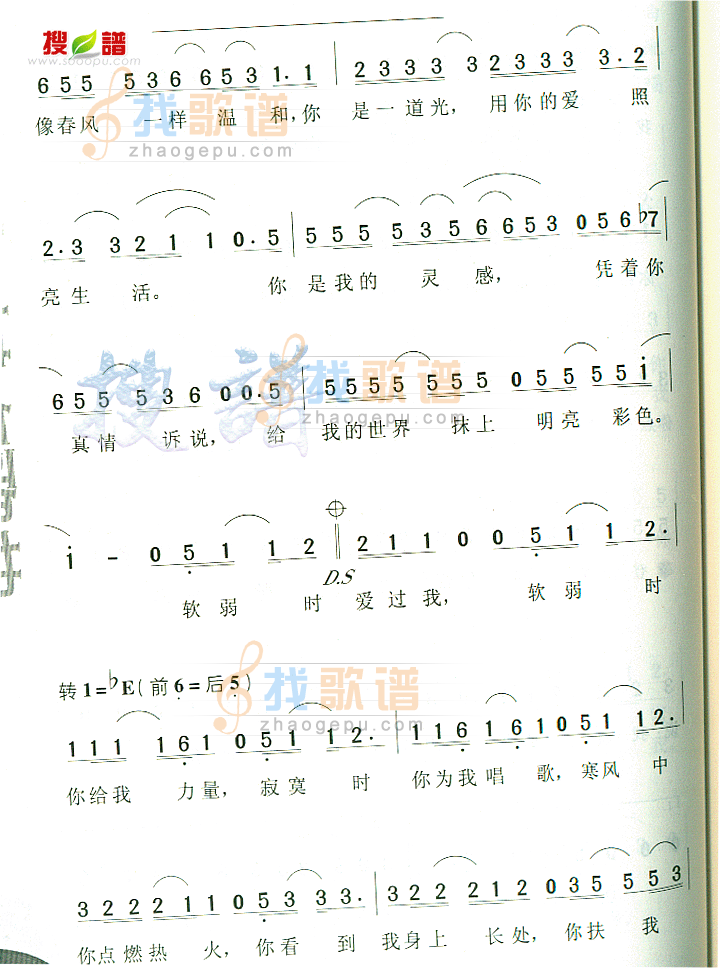 搜谱
www.sooopu.com
6 5 5 5 3 6 6 5 3 1. 1 | 2 3 3 3 3 2 3 3 3 3. 2
像春风 一样 温 和,你 是一道光, 用你的爱 照
找歌谱
zhaogepu.com
2. 3 3 2 1 1 0. 5 | 5 5 5 5 3 5 6 6 5 3 0 5 6 ♭7
亮生 活。 你 是我的 灵 感, 凭着你
搜谱
找歌谱
zhaogepu.com
6 5 5 5 3 6 0 0. 5 | 5 5 5 5 5 5 5 0 5 5 5 5 i
真情 诉说, 给 我的世界 抹上 明亮 彩色。
i - 0 5 1 1 2 ‖ 2 1 1 0 0 5 1 1 2.
D.S
软弱 时 爱过我, 软弱 时
转1=♭E(前6=后5)
找歌谱
zhaogepu.com
1 1 1 1 6 1 0 5 1 1 2. | 1 1 6 1 6 1 0 5 1 1 2.
你给我 力量, 寂寞 时 你为我 唱 歌, 寒风 中
3 2 2 2 1 1 0 5 3 3 3. | 3 2 2 2 1 2 0 3 5 5 5 3
你点燃热 火, 你看 到 我身上 长处, 你扶 我